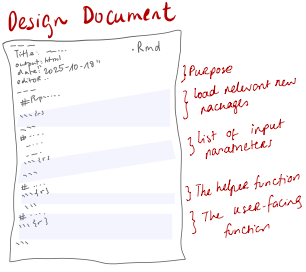 Design Document
---
Title: ~~...
.Rmd
output: html
date: "2025-10-18"
editor..
---
}Purpose
}Load relevant new
packages
```{r}
```
#....
}List of input
parameters
```{r}
#....
}The helper function
```{r}
}The user-facing
function
#....
```{r}
```